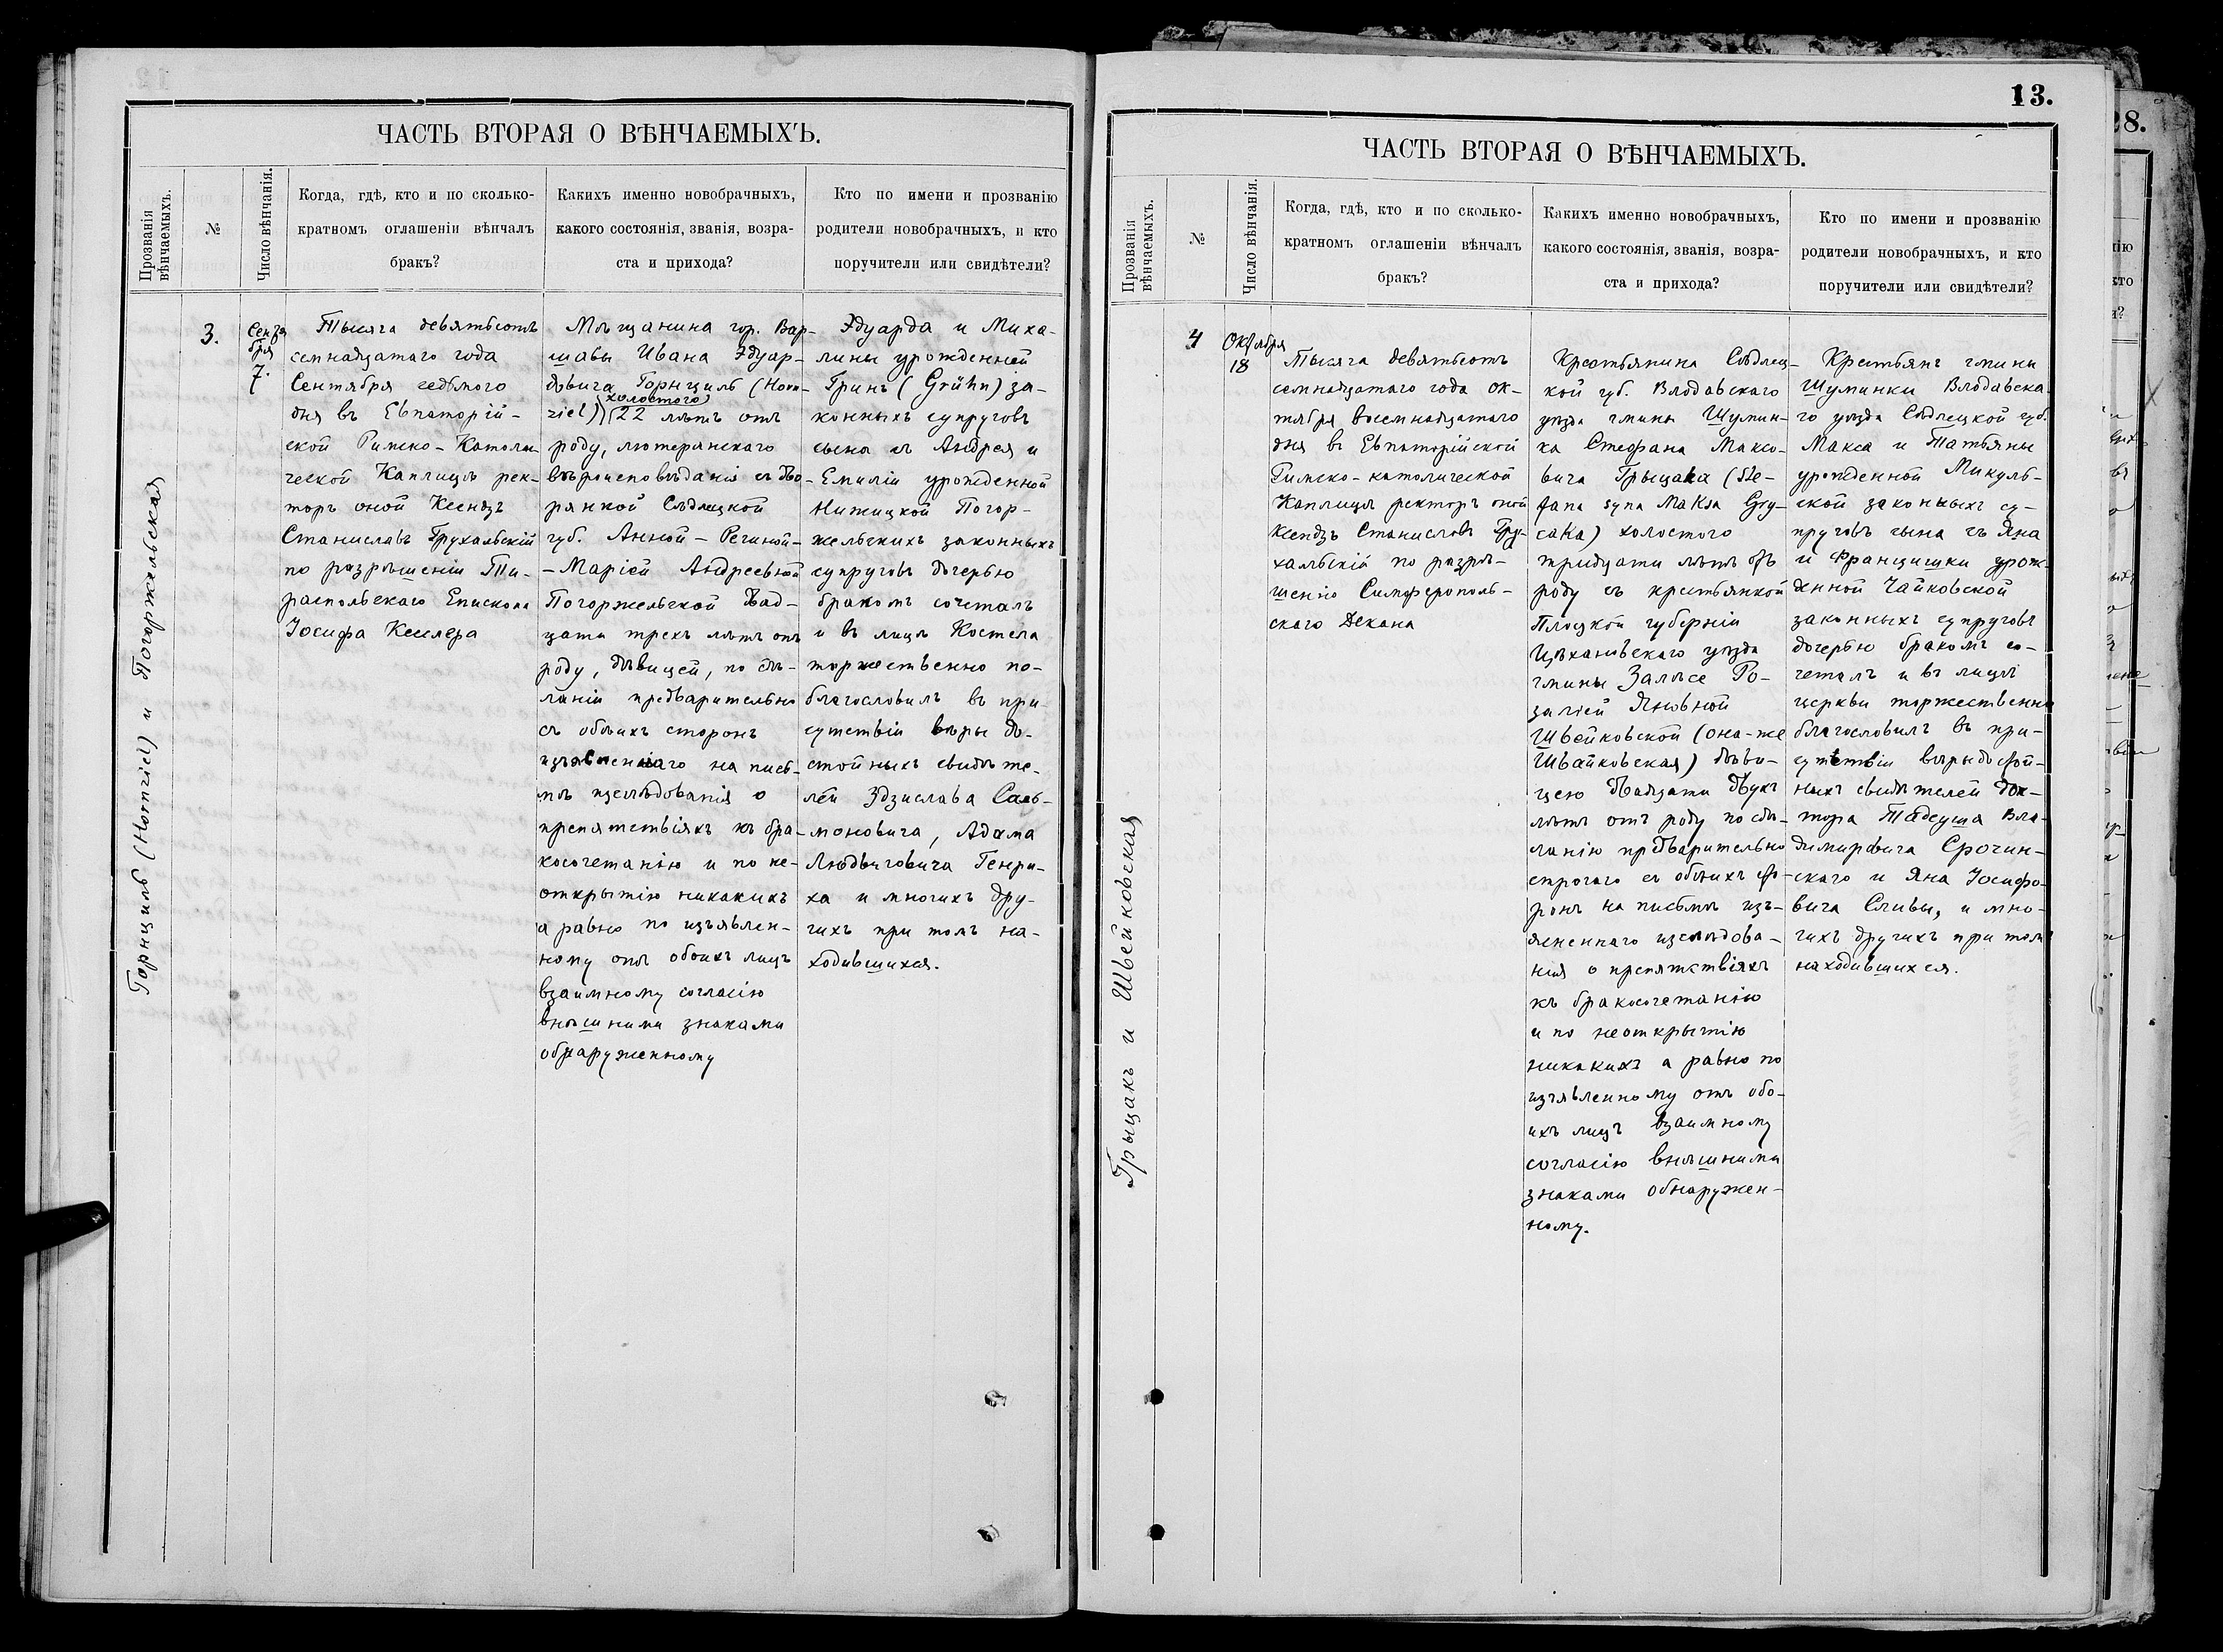 13.
ЧАСТЬ ВТОРАЯ О ВѢНЧАЕМЫХЪ.
Прозванія
вѣнчаемыхъ.
№
Число вѣнчанія.
Когда, гдѣ, кто и по сколько-
кратномъ оглашеніи вѣнчалъ
бракъ?
Какихъ именно новобрачныхъ,
какого состоянія, званія, возра-
ста и прихода?
Кто по имени и прозванію
родители новобрачныхъ, и кто
поручители или свидѣтели?
Горнциль (Hornziel) и Погоржельская
3.
Сентя
бря
7.
Тысяча девятьсотъ
семнадцатаго года
Сентября седьмого
дня въ Евпаторій-
ской Римско-Католи-
ческой Каплицѣ рек-
торъ оной Ксендзъ
Станиславъ Грухальскій
по разрѣшеніи Ти-
распольскаго Епископа
Іосифа Кеслера
Мѣщанина гор. Вар-
шавы Ивана Эдуар-
довича Горнциль (Horn-
холостого
ziel) 22 лѣтъ отъ
роду, лютеранскаго
вѣроисповѣданія съ дво-
рянкой Сѣдлецкой
губ. Анной-Региной-
-Маріей Андреевной
Погоржельской двад-
цати трехъ лѣтъ отъ
роду, дѣвицей, по сдѣ-
ланіи предварительно
съ обѣихъ сторонъ
изъясненнаго на пись-
мѣ изслѣдованія о
препятствіяхъ къ бра-
косочетанію и по не-
открытію никакихъ
а равно по изъявлен-
ному отъ обоихъ лицъ
взаимному согласію
внѣшними знаками
обнаруженному
Эдуарда и Миха-
лины урожденной
Гринъ (Grühn) за-
конныхъ супруговъ
сына съ Андрея и
Емиліи урожденной
Нитицкой Погор-
жельскихъ законныхъ
супруговъ дочерью
бракомъ сочеталъ
и въ лицѣ Костела
торжественно по-
благословилъ въ при-
сутствіи вѣры до-
стойныхъ свидѣте-
лей Здзислава Саль-
моновича, Адама
Людвиговича Генри-
ха и многихъ дру-
гихъ при томъ на-
ходившихся.
ЧАСТЬ ВТОРАЯ О ВѢНЧАЕМЫХЪ.
Прозванія
вѣнчаемыхъ.
№
Число вѣнчанія.
Когда, гдѣ, кто и по сколько-
кратномъ оглашеніи вѣнчалъ
бракъ?
Какихъ именно новобрачныхъ,
какого состоянія, званія, возра-
ста и прихода?
Кто по имени и прозванію
родители новобрачныхъ, и кто
поручители или свидѣтели?
Грыцакъ и Швейковская
4
Октября
18
Тысяча девятьсотъ
семнадцатаго года ок-
тября восемнадцатаго
дня въ Евпаторійской
Римско-католической
Каплицѣ ректоръ оной
Ксендзъ Станиславъ Гру-
хальскій по разрѣ-
шенію Симферополь-
скаго Декана
Крестьянина Сѣдлец-
кой губ. Влодавскаго
уѣзда гмины Шумин-
ка Стефана Максо-
вича Грыцака (Ste-
fana syna Maksa Gry-
caka) холостого
тридцати лѣтъ отъ
роду съ крестьянкой
Плоцкой губерніи
Цѣхановскаго уѣзда
гмины Залѣсе Ро-
заліей Яновной
Швейковской (она-же
Швайковская) дѣви-
цею двадцати двухъ
лѣтъ отъ роду по сдѣ-
ланію предварительно
строгаго съ обѣихъ сто-
ронъ на письмѣ изъ-
ясненнаго изслѣдова-
нія о препятствіяхъ
къ бракосочетанію
и по неоткрытію
никакихъ а равно по
изъявленному отъ обо-
ихъ лицъ взаимному
согласію внѣшними
знаками обнаружен-
ному.
Крестьянъ гмины
Шуминки Влодавска-
го уѣзда Сѣдлецкой губ.
Макса и Татьяны
урожденной Микуль-
ской законныхъ су-
пруговъ сына съ Яна
и Францишки урож-
денной Чайковской
законныхъ супруговъ
дочерью бракомъ со-
четалъ и въ лицѣ
церкви торжественно
благословилъ въ при-
сутствіи вѣрыдостой-
ныхъ свидѣтелей док-
тора Тадеуша Вла-
димировича Срочин-
скаго и Яна Іосифо-
вича Сливы, и мно-
гихъ другихъ при томъ
находившихся.
28.